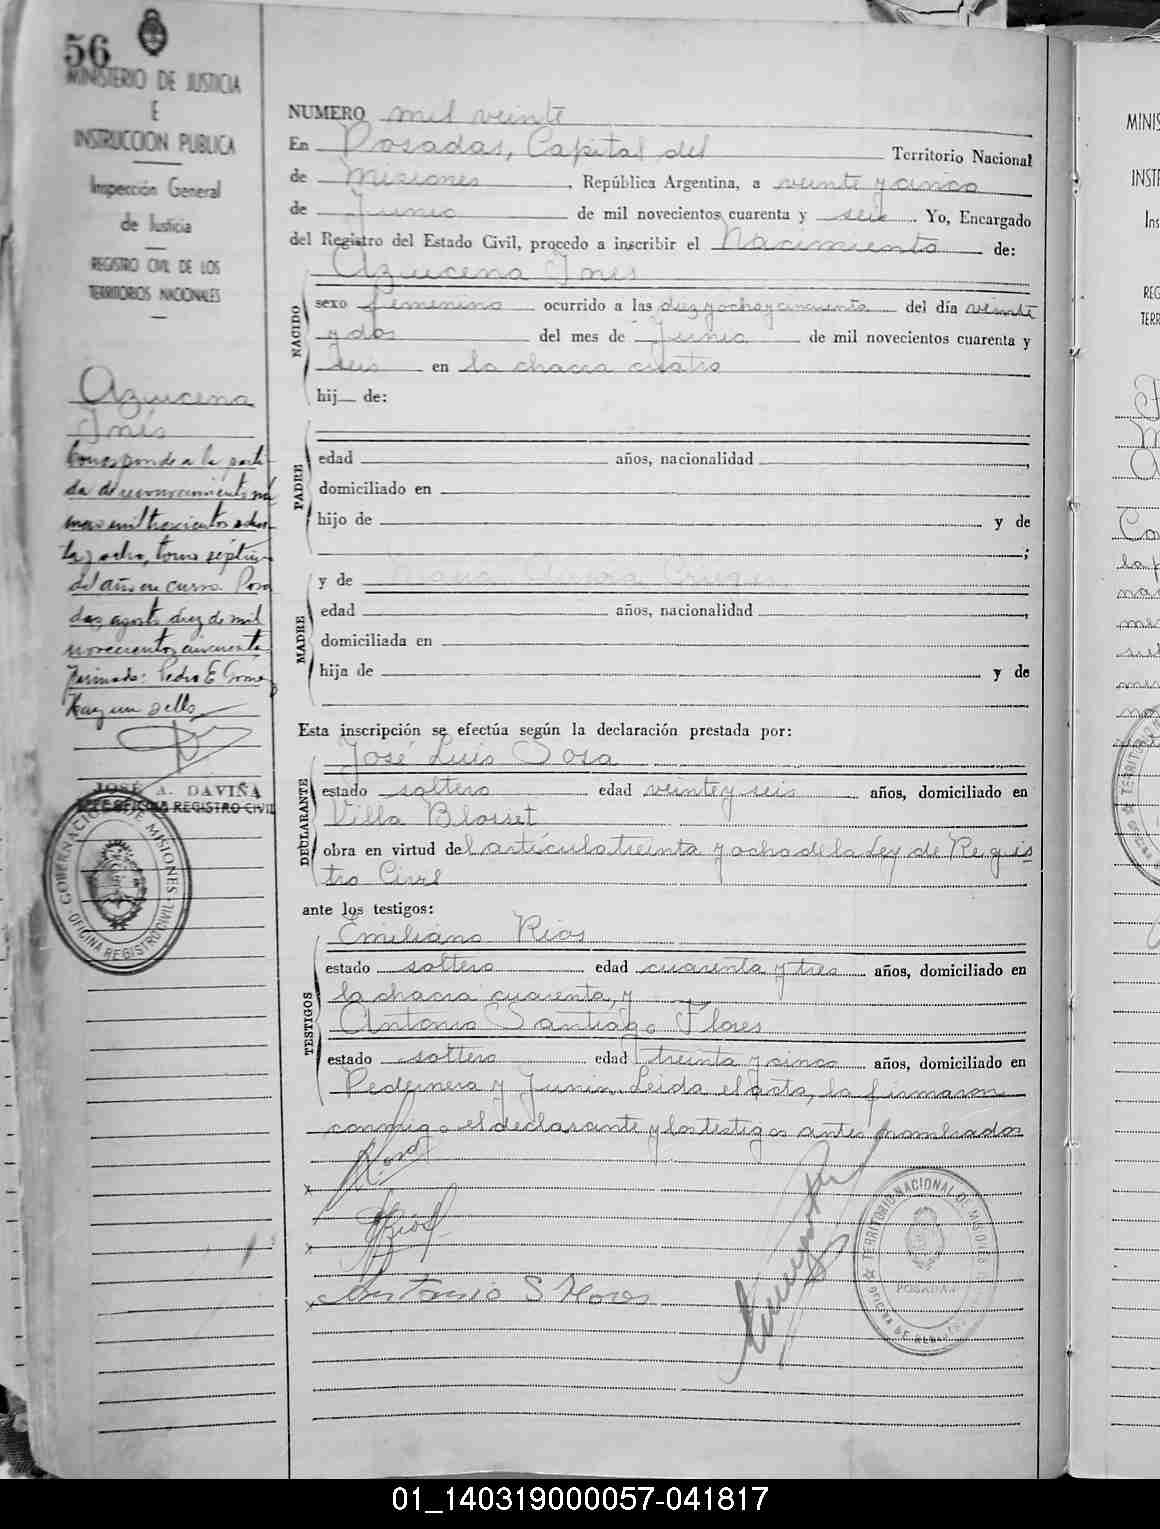 56
MINISTERIO DE JUSTICIA
E
INSTRUCCION PUBLICA
Inspección General
de Justicia
REGISTRO CIVIL DE LOS
TERRITORIOS NACIONALES
Azucena
Inés
Corresponde a la parti-
da de reconocimiento nú
mero mil trescientos ochen-
ta y ocho, tomo séptimo
del año en curso. Posa
das, agosto diez de mil
novecientos cincuenta
Firmado: Pedro E. Gome
Hay un sello
JOSÉ A. DAVIÑA
JEFE OFICINA REGISTRO CIVIL
GOBERNACION DE MISIONES
OFICINA REGISTRO CIVIL
NUMERO mil veinte
En Posadas, Capital del Territorio Nacional
de Misiones, República Argentina, a veinte y cinco
de Junio de mil novecientos cuarenta y seis. Yo, Encargado
del Registro del Estado Civil, procedo a inscribir el Nacimiento de:
Azucena Ines
NACIDO
sexo femenino ocurrido a las diez y ocho y cincuenta del día veinte
y dos del mes de Junio de mil novecientos cuarenta y
seis en la chacra cuatro
hij de:
PADRE
edad años, nacionalidad ,
domiciliado en
hijo de y de
;
MADRE
y de
edad años, nacionalidad ,
domiciliada en
hija de y de
Esta inscripción se efectúa según la declaración prestada por:
José Luis Sosa
DECLARANTE
estado soltero edad veinte y seis años, domiciliado en
Villa Blosset
obra en virtud del artículo treinta y ocho de la Ley de Regis
tro Civil
ante los testigos:
Emiliano Rios
TESTIGOS
estado soltero edad cuarenta y tres años, domiciliado en
la chacra cuarenta, y
Antonio Santiago Flores
estado soltero edad treinta y cinco años, domiciliado en
Pedernera y Junin. Leida el acta, la firmaron
conmigo el declarante y los testigos antes nombrados
x
x
x Antonio S Flores
TERRITORIO NACIONAL DE MISIONES
POSADAS
MINIS
INSTR
Ins
REG
TERR
01_140319000057-041817